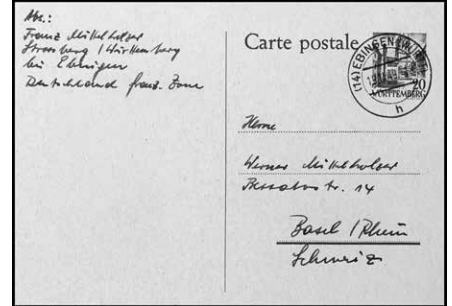 Abs.:
Franz Mittelholzer
Strassberg / Württemberg
bei Ebingen
Deutschland franz. Zone
Carte postale
(14) EBINGEN (WÜRTT)
20
WÜRTTEMBERG
h
Herrn
Werner Mittelholzer
14
Basel / Rhein
Schweiz